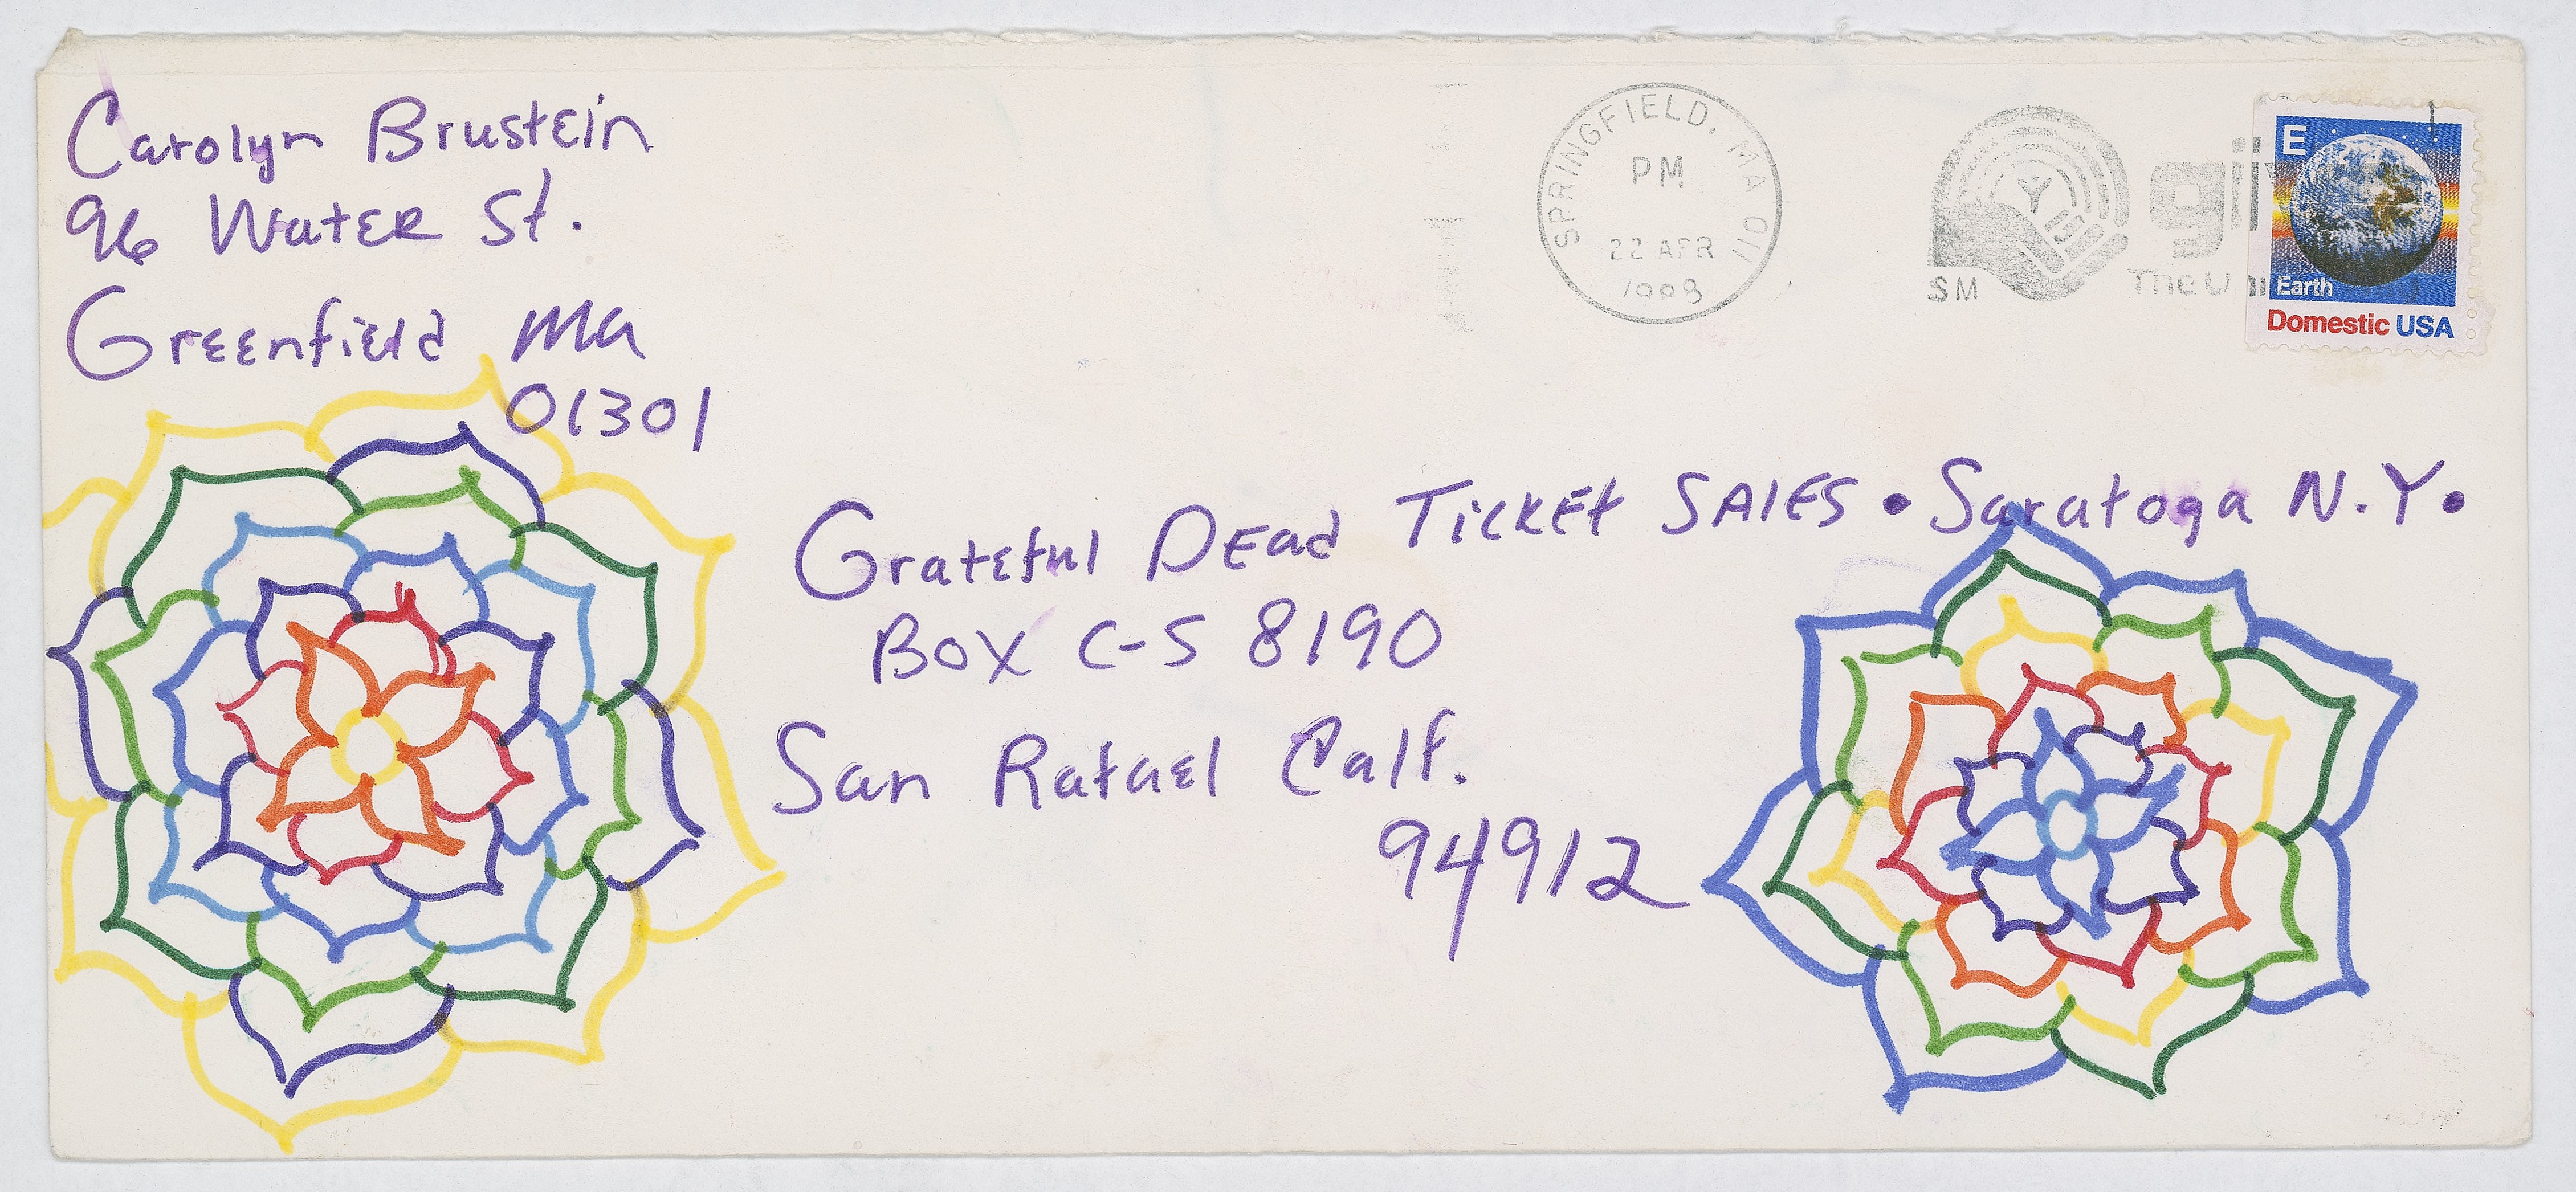 Carolyn Brustein
96 Water St.
Greenfield Ma
01301
SPRINGFIELD, MA 011
PM
22 APR
SM
The U
E
Earth
Domestic USA
Grateful Dead Ticket Sales • Saratoga N.Y.
Box C-S 8190
San Rafael Calf.
94912